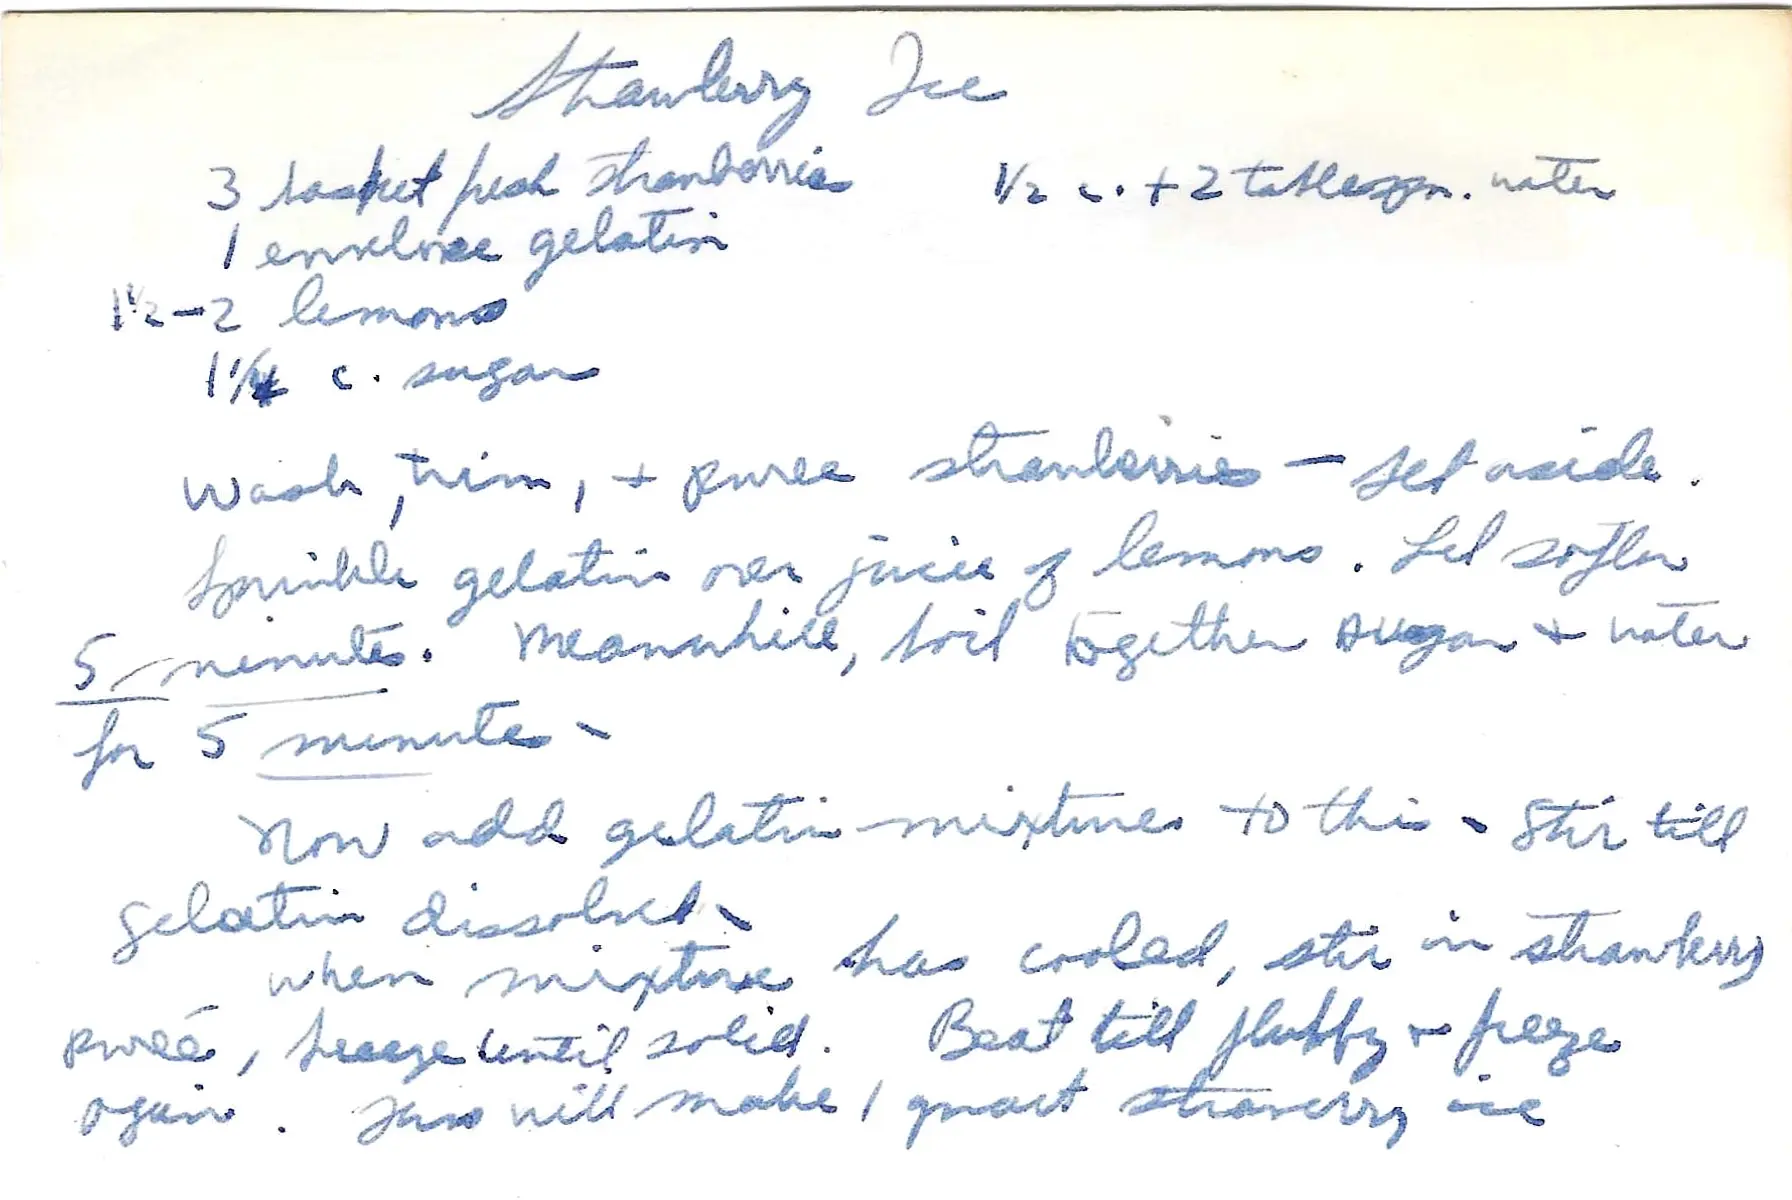 Strawberry Ice
3 basket fresh strawberries 1/2 c. + 2 tablespn. water
1 envelope gelatin
1 1/2 - 2 lemons
1 1/4 c. sugar
Wash, trim, + puree strawberries - set aside.
Sprinkle gelatin over juice of lemons. Let soften
5 minutes. Meanwhile, boil together sugar + water
for 5 minutes.
Now add gelatin mixture to this. Stir till
gelatin dissolved.
When mixture has cooled, stir in strawberry
pureé, freeze until solid. Beat till fluffy + freeze
again. This will make 1 quart strawberry ice